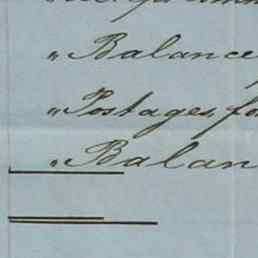 " Balance
" Postages fo
" Balan